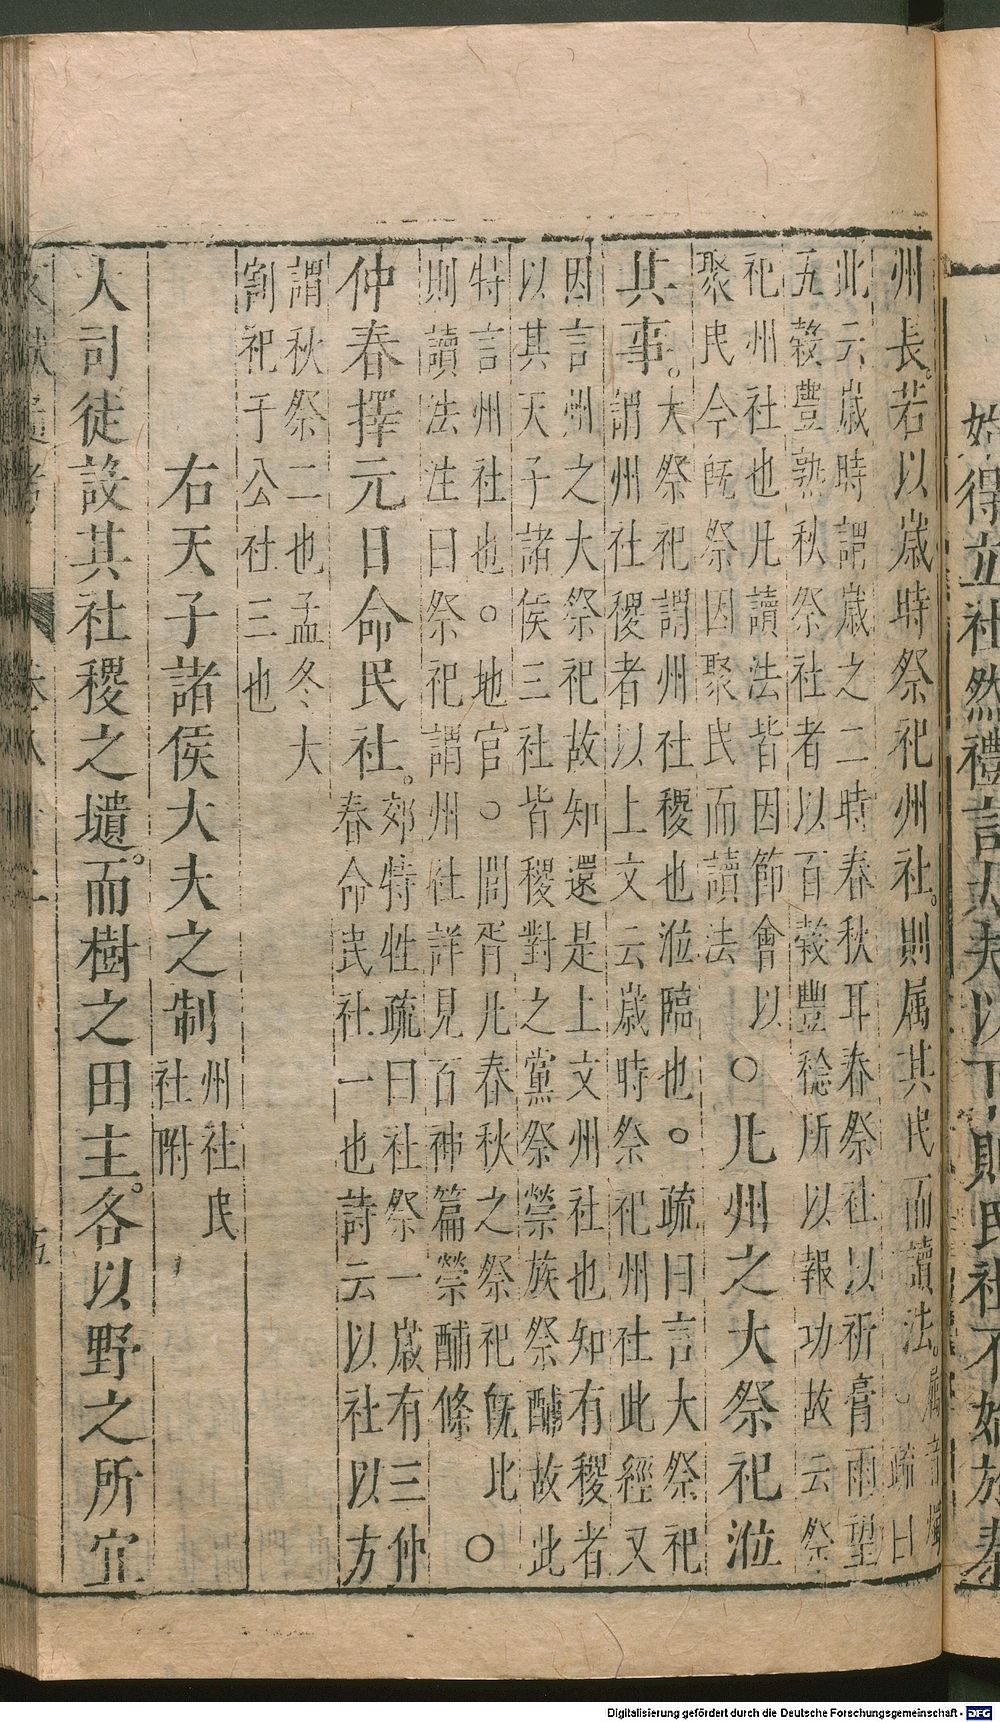 始得立社然禮記大夫以下則民社不始於秦
州長若以歲時祭祀州社則属其民而讀法屬音燭
○疏曰
此云歲時謂歲之二時春秋耳春祭社以祈膏雨望
五穀豐熟秋祭社者以百穀豐稔所以報功故云祭
祀州社也凡讀法皆因節會以
聚民今旣祭因聚民而讀法
○凡州之大祭祀涖
其事
大祭祀謂州社稷也涖臨也○疏曰言大祭祀
謂州社稷者以上文云歲時祭祀州社此經又
因言州之大祭祀故知還是上文州社也知有稷者
以其天子諸侯三社皆稷對之黨祭禜族祭酺故此
特言州社也○地官○閭胥凡春秋之祭祀旣比
則讀法注曰祭祀謂州社詳見百神篇禜酺條
○
仲春擇元日命民社
郊特牲疏曰社祭一歲有三仲
春命民社一也詩云以社以方
謂秋祭二也孟冬大
割祀于公社三也
右天子諸侯大夫之制
州社民
社附
大司徒設其社稷之壝而樹之田主各以野之所宜
Digitalisierung gefördert durch die Deutsche Forschungsgemeinschaft - DFG